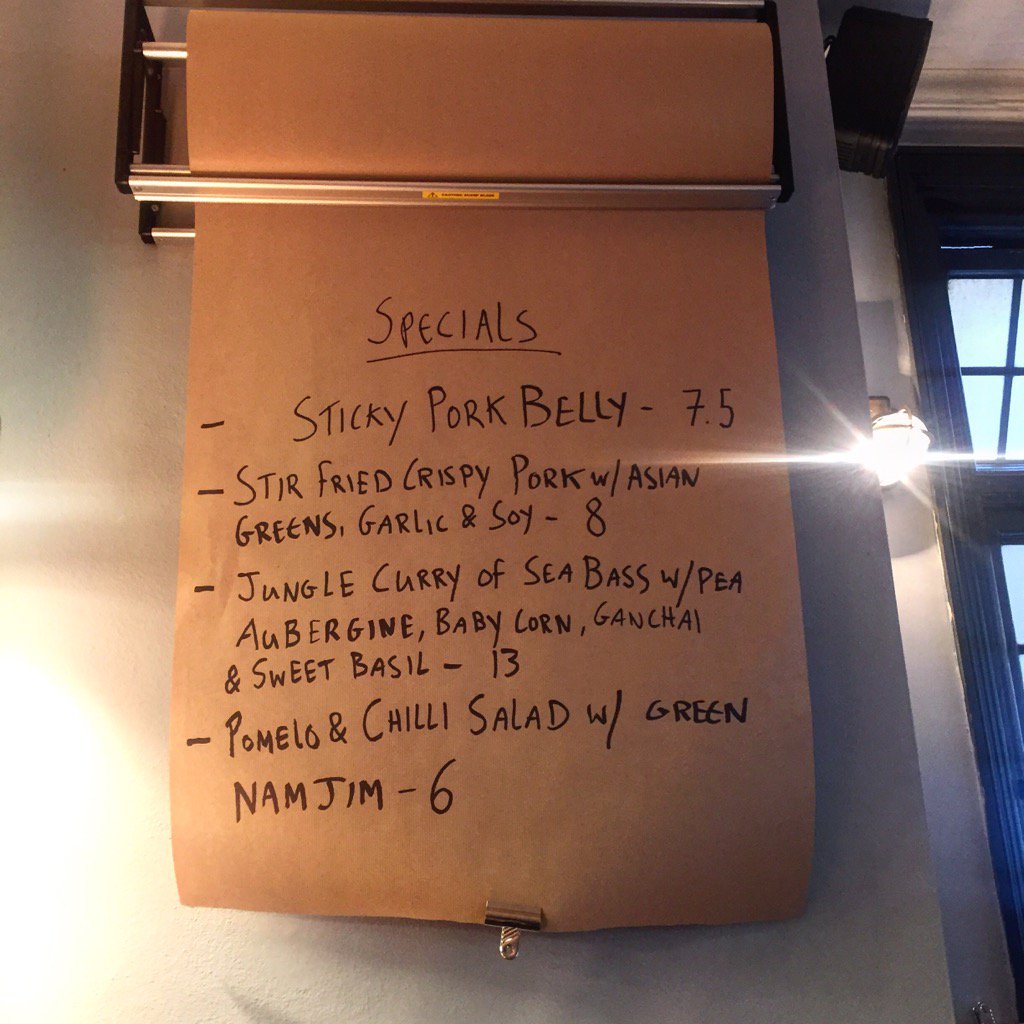 CAUTION SHARP BLADE
SPECIALS
- STICKY PORK BELLY - 7.5
- STIR FRIED CRISPY PORK W/ ASIAN
GREENS, GARLIC & SOY - 8
- JUNGLE CURRY OF SEA BASS W/ PEA
AUBERGINE, BABY CORN, GANCHAI
& SWEET BASIL - 13
- POMELO & CHILLI SALAD W/ GREEN
NAM JIM - 6